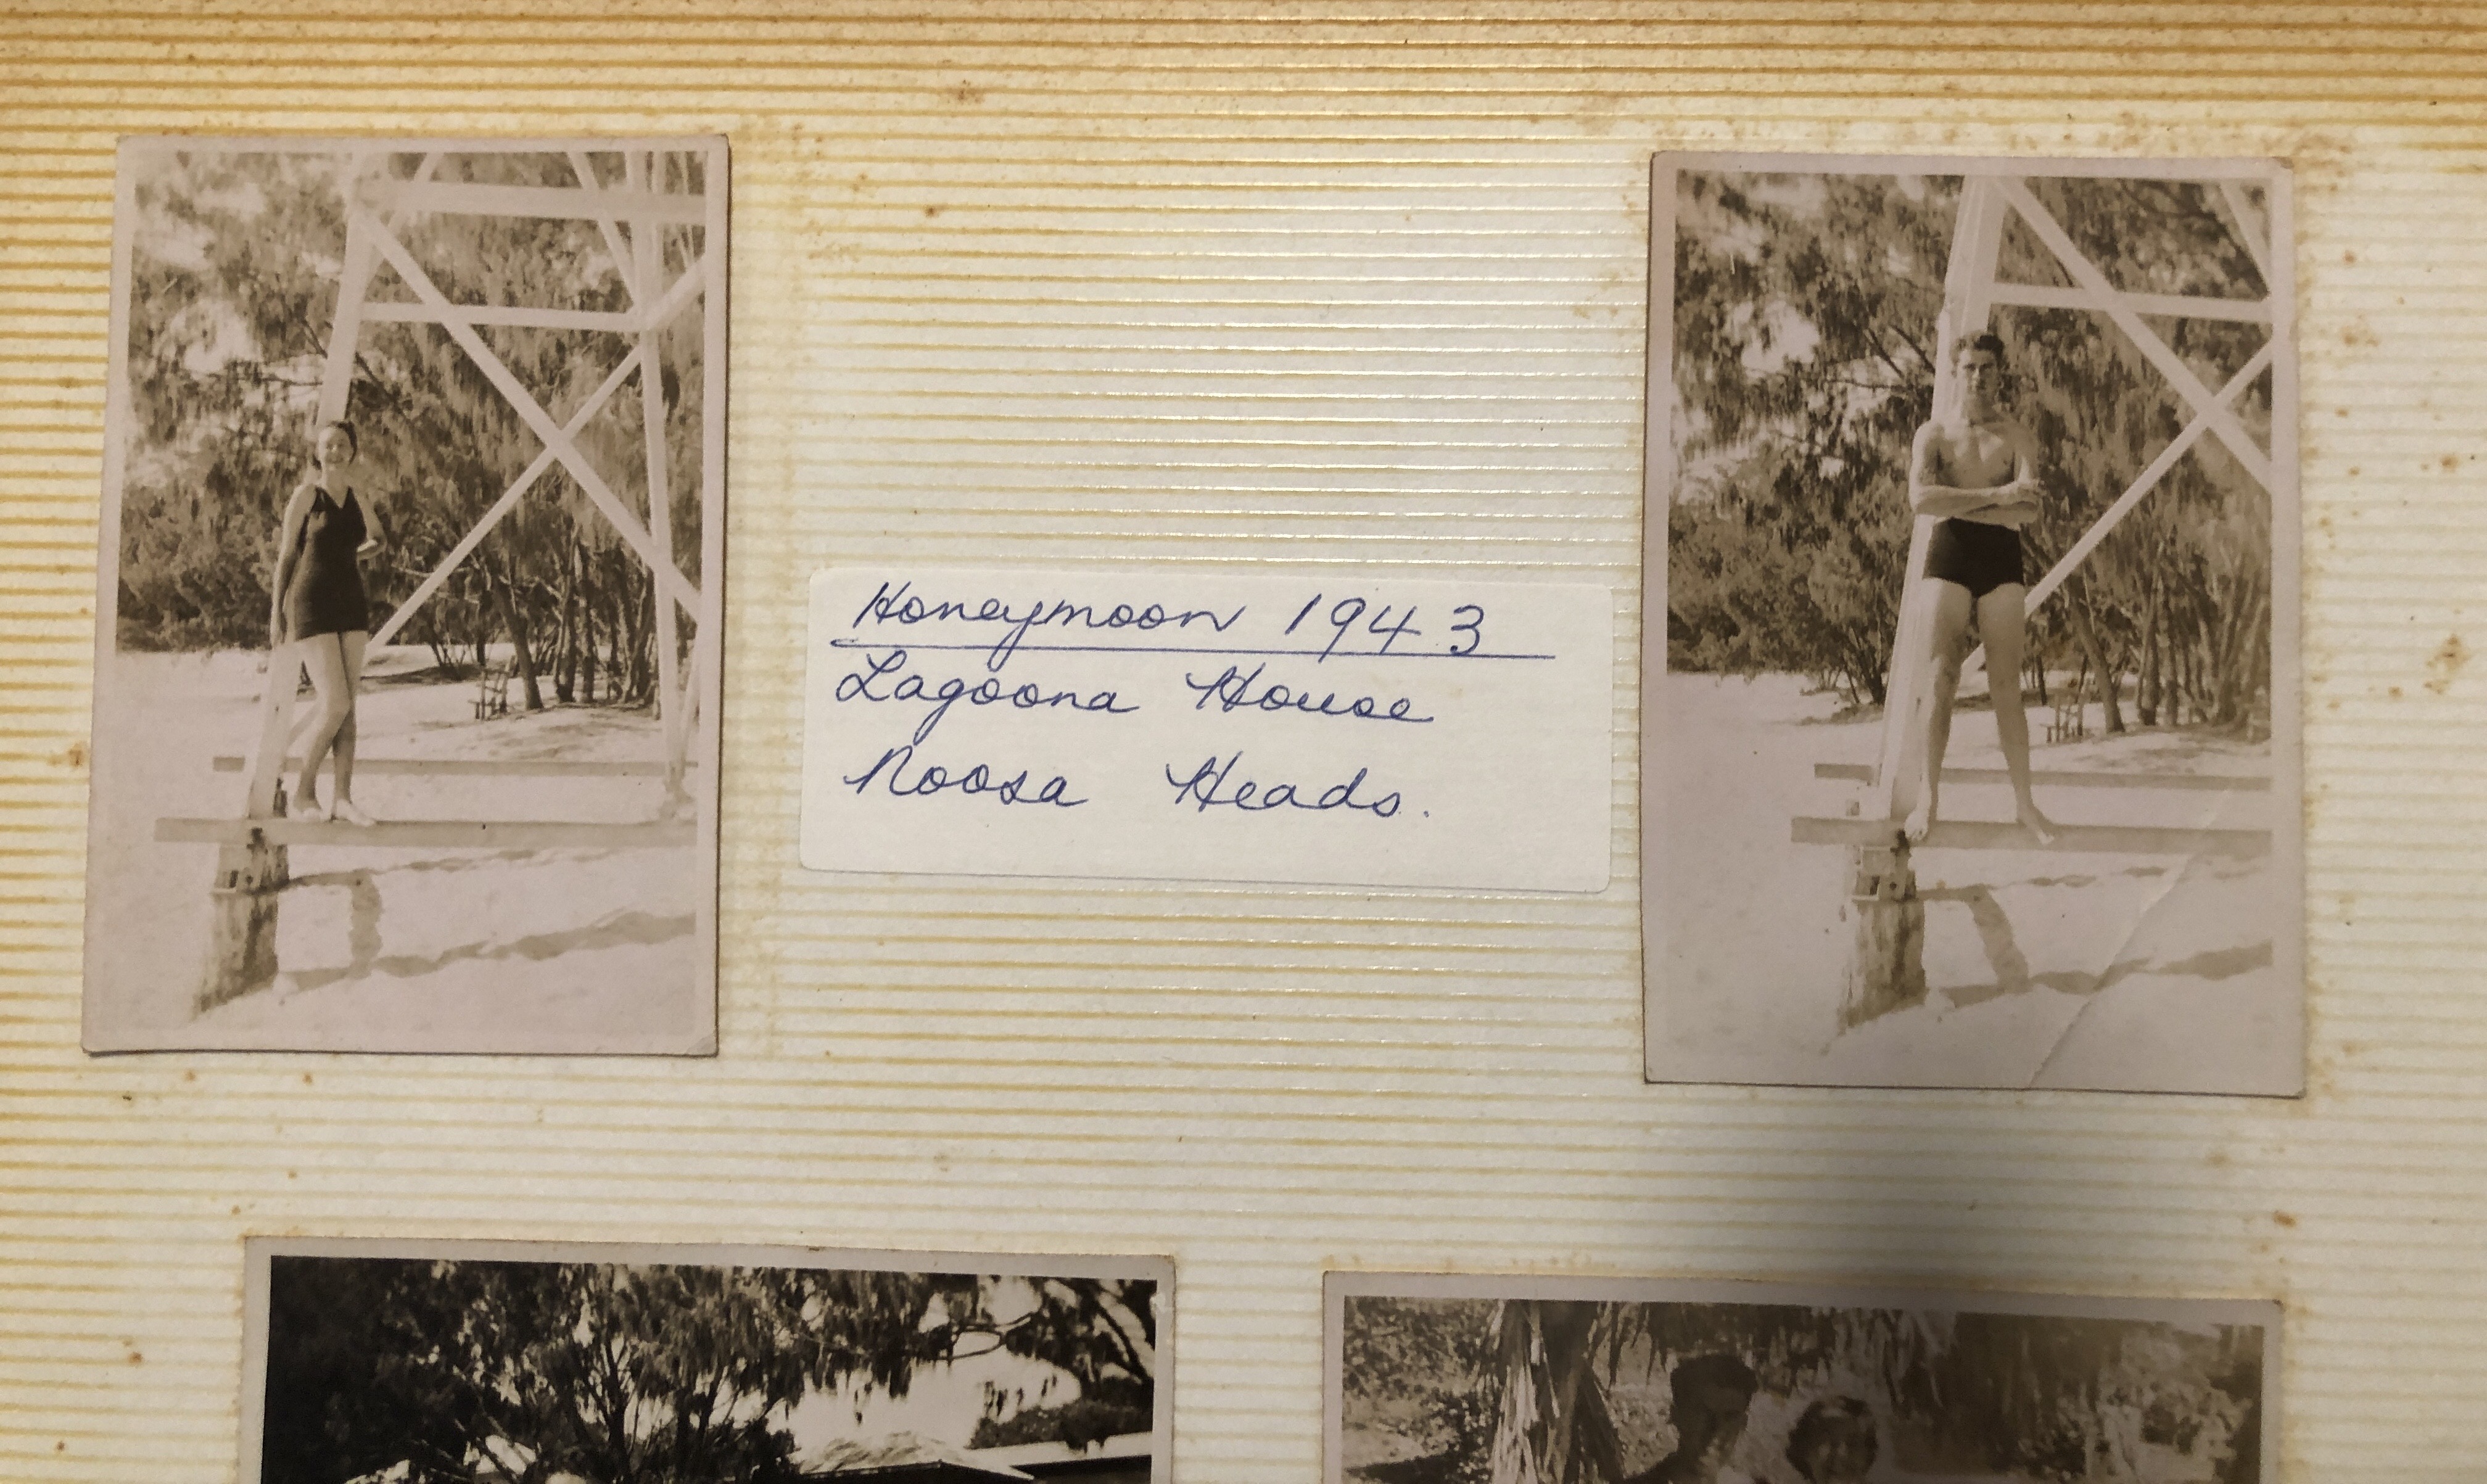 Honeymoon 1943
Lagoona House
Noosa Heads.